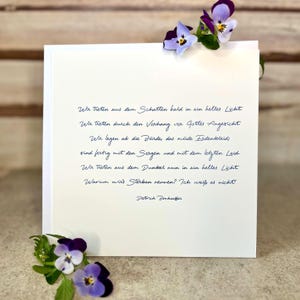 Wir treten aus dem Schatten bald in ein helles Licht
Wir treten durch den Vorhang vor Gottes Angesicht
Wir legen ab die Bürde, das müde Erdenkleid;
sind fertig mit den Sorgen und mit dem letzten Leid
Wir treten aus dem Dunkel nun in ein helles Licht
Warum wir's Sterben nennen? Ich weiß es nicht
Dietrich Bonhoeffer